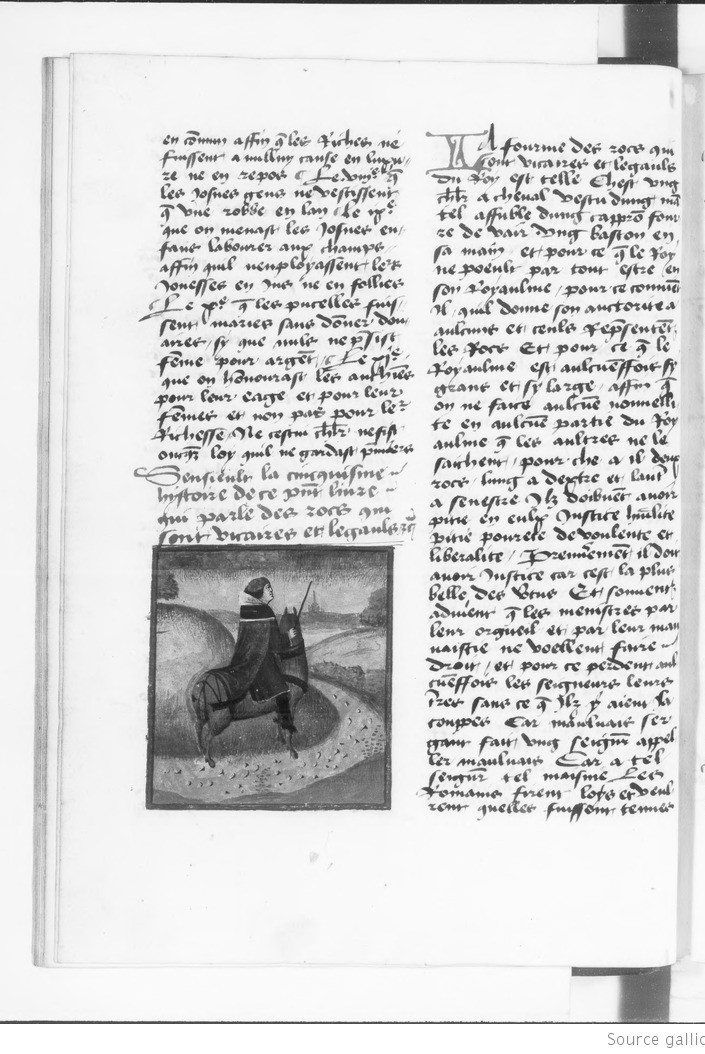 en comun affin q̃ les Riches ne
fuissent a nulluy cause en luxu-
re ne en repos Le viiiᵉ q̃
les Josnes gens ne vestissent
q̃ une robbe en lan Le ixᵉ
que on menast les Josnes en-
fans labourer aux champs
affin quil nemployassent lers
Jonesses en Jus ne en follies
Le xᵉ q̃ les pucelles fuis-
sent mariees sans doner dou-
aires sy que nulz ne presist
feme pour argent Le xiᵉ
que on honnourast les anchies
pour leur eage et pour leur
femes et non pas pour le
Richesse Ne cestui chlr ne fist
oncqs loy quil ne gardast
Sensieult la cincquisme
histoire de ce pnt livre
qui parle des rocs qui
sont vicaires et legaulx
LA fourme des rocs qui
sont vicaires et legaulx
du Roy est telle Chest ung
chlr a cheval vestu dung ma
tel affuble dung cappro four
re de vair ung baston en
sa main et pour ce q̃ le Roy
ne poeult par tout estre en
son Royaulme pour ce convient
Il quil donne son auctorite a
aulcuns et ceulx Representent
les Rocs Et pour ce q̃ le
Royaulme est aulcuneffois sy
grans et sy large affin q̃
on ne face aulcune nouvelli
te en aulcune partie du Roy
aulme q̃ les aultres ne le
sachent pour che a il deux
rocs lung a dextre et laut
a senestre Ilz doibvent avoir
pitie en eulx Justice humilite
pitie pourete de voulente et
liberalite Premierement il doit
avoir Justice car cest la plus
belle des vtus Et souvent
advient q̃ les menistres par
leur orgueil et par leur mau
vaistie ne voellent faire
droit et pour ce perdent aul
cuneffois les seigneurs leurs
tres sans ce q̃ Ilz y aient la
coupes Car maulvais ser
gant fait ung seignr appel
ler maulvais Car a tel
seignr tel maisnie Les
Romains firent lois et voul
rent quelles fuissent tenues
Source gallic